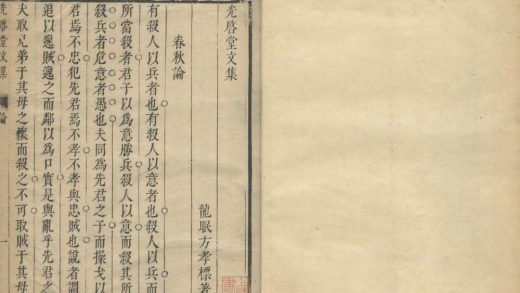 光啓堂文集
龍眠方孝標著
春秋論
有殺人以兵者也有殺人以意者也殺人以兵而
所當殺者君子以為意勝兵殺人以意而殺其所
殺兵者危意者愚也夫同為先君之子而操戈以
君焉不忠犯先君焉不孝不孝與忠賊也說者謂
追以逸賊逸之而鄰以為口實是與亂乎先君之
夫取兄弟于其母之懷而殺之不可取賊于其母
啓堂文集 論 一